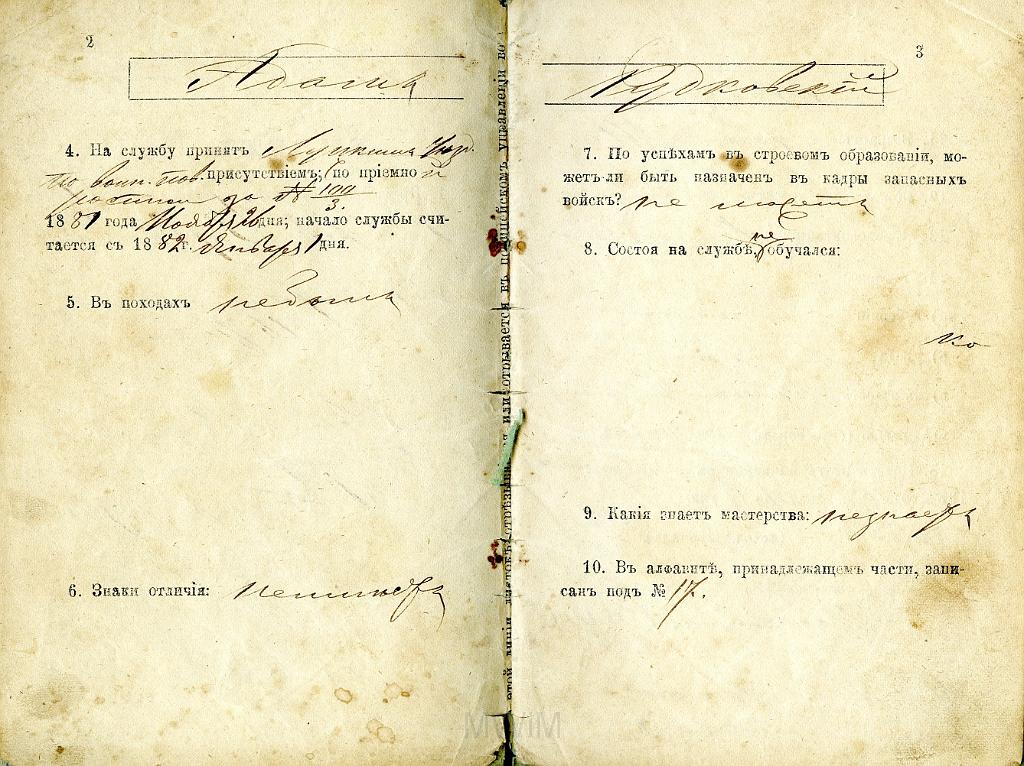 2
Адамъ
4. На службу принятъ Луцкимъ уѣзд.
по воин. пов. присутствіемъ; по пріемной
росписи за № 100/3.
1881 года Ноября 26 дня; начало службы счи-
тается съ 1882 г. Января 1 дня.
5. Въ походахъ небылъ
6. Знаки отличія: неимѣетъ
этой линіи листокъ отрѣзыв или отрывается въ полицейскомъ управленіи во
3
Рудковскій
7. По успѣхамъ въ строевомъ образованіи, мо-
жетъ-ли быть назначенъ въ кадры запасныхъ
войскъ? не можетъ
8. Состоя на службѣ, не обучался:
Ко
9. Какія знаетъ мастерства: незнаетъ
10. Въ алфавитѣ, принадлежащемъ части, запи-
санъ подъ № 17.